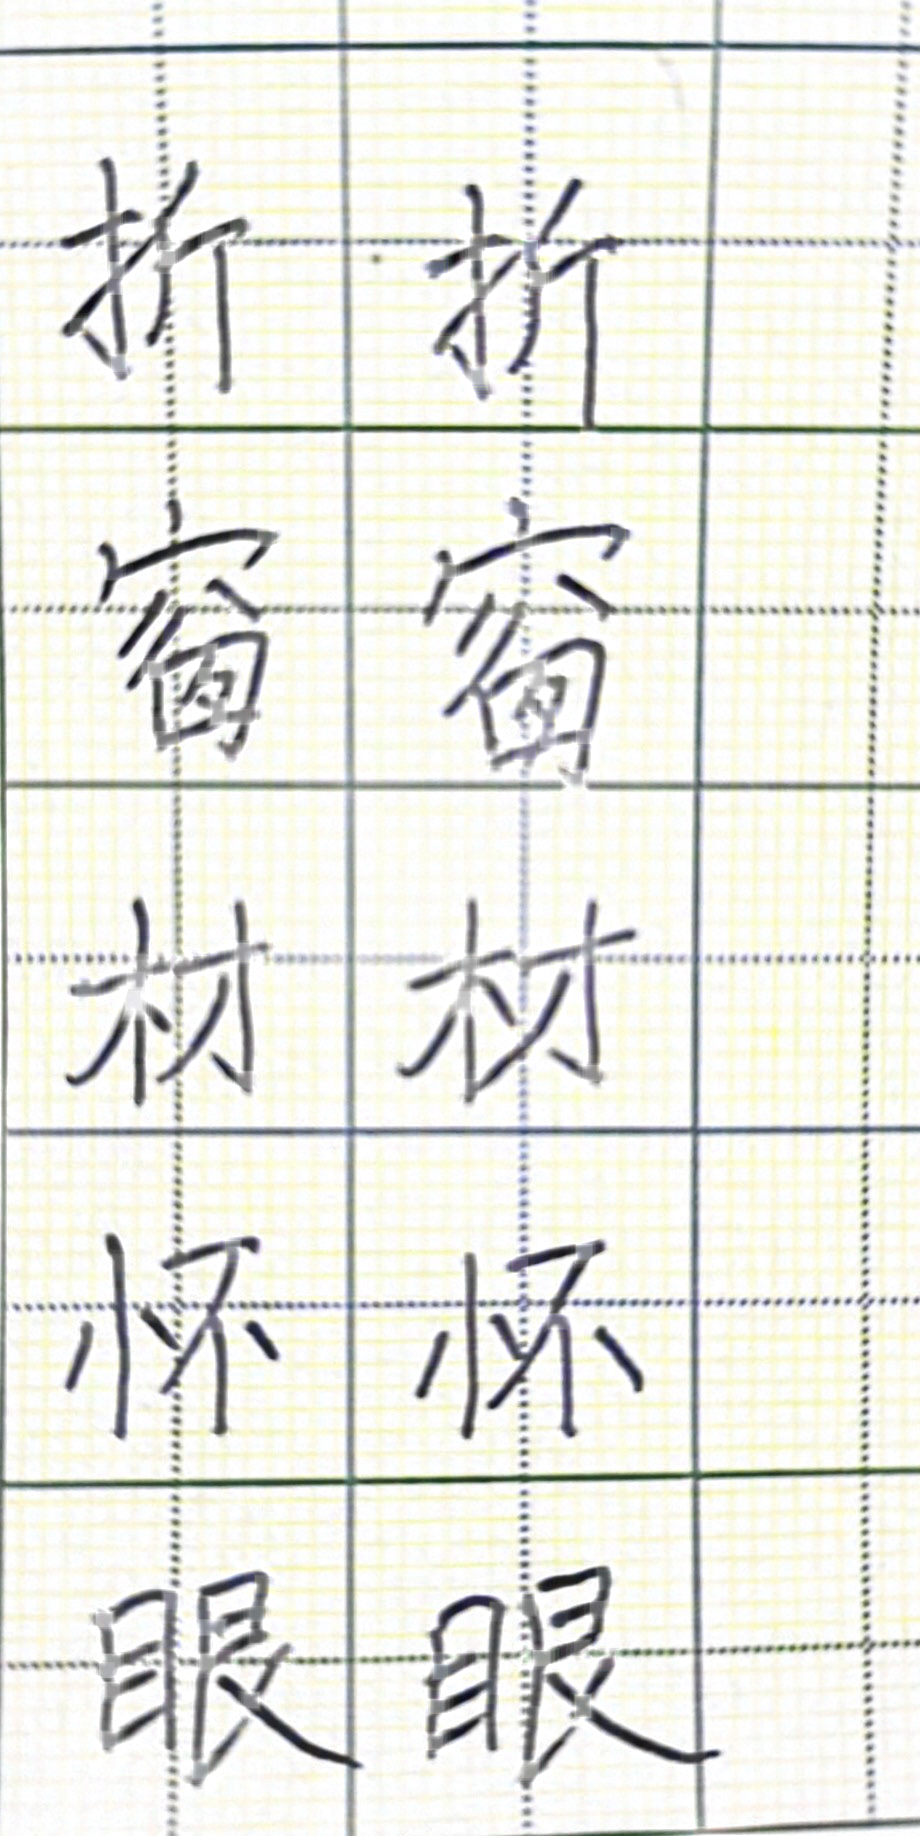 折 折
窗 窗
材 材
怀 怀
眼 眼